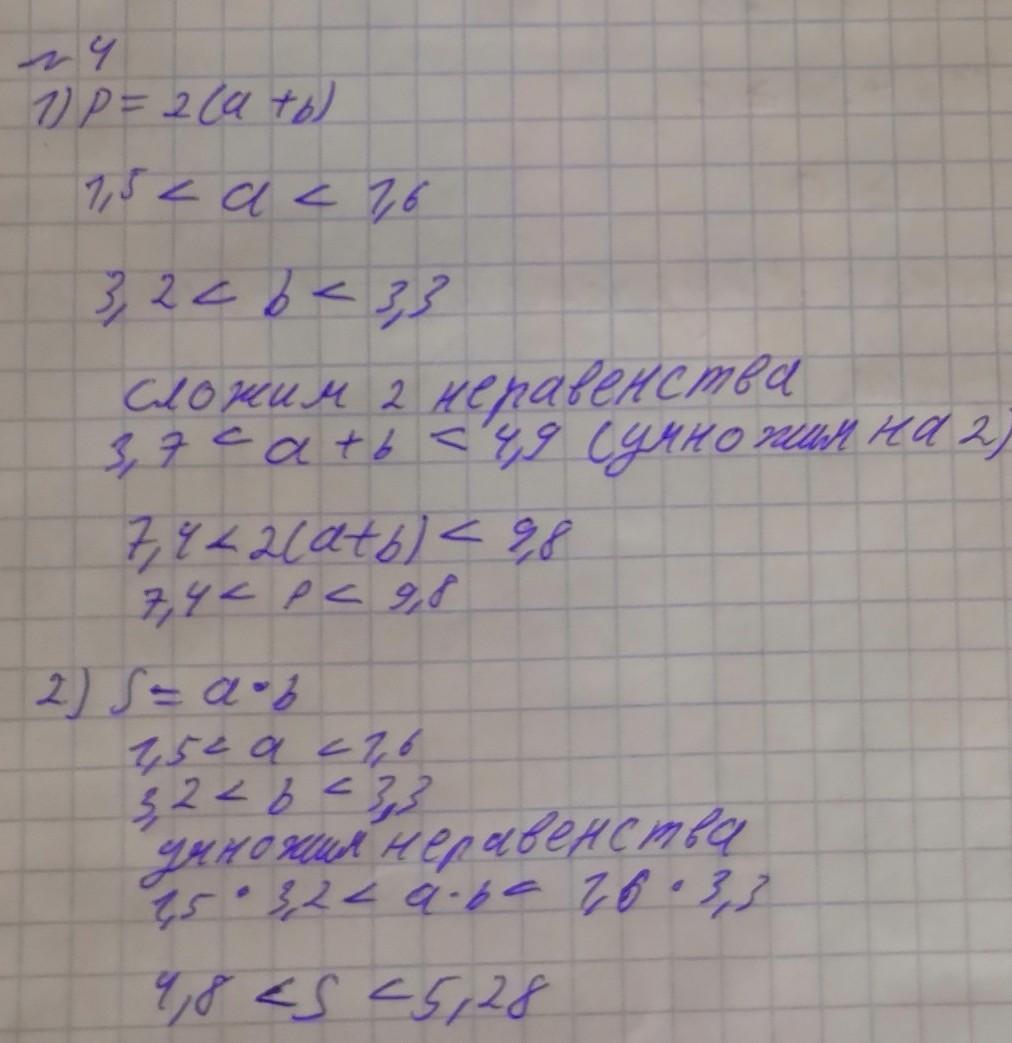 № 4
1) P = 2(a + b)
1,5 < a < 1,6
3,2 < b < 3,3
сложим 2 неравенства
3,7 < a + b < 4,9 (умножим на 2)
7,4 < 2(a+b) < 9,8
7,4 < P < 9,8
2) S = a · b
1,5 < a < 1,6
3,2 < b < 3,3
умножим неравенства
1,5 · 3,2 < a · b < 1,6 · 3,3
4,8 < S < 5,28